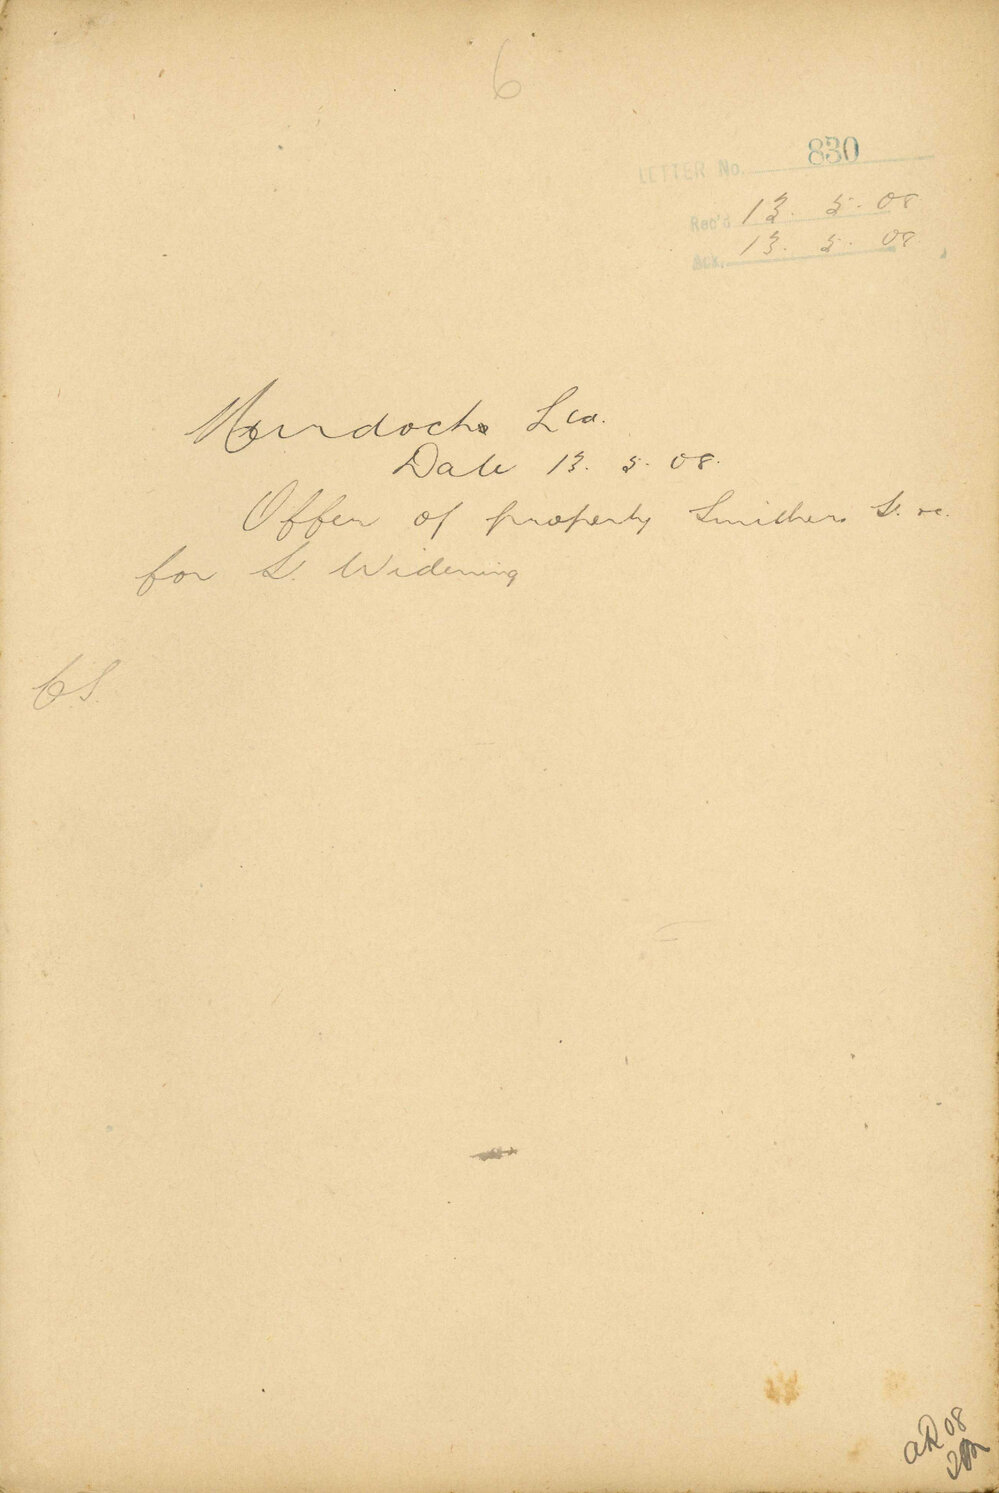 6
LETTER No. 830
Rec'd 13. 5. 08
Ack. 13. 5. 08
Murdochs Ltd.
Date 13. 5. 08.
Offer of property Smithers S. &c.
for S. Widening
C.S.
08